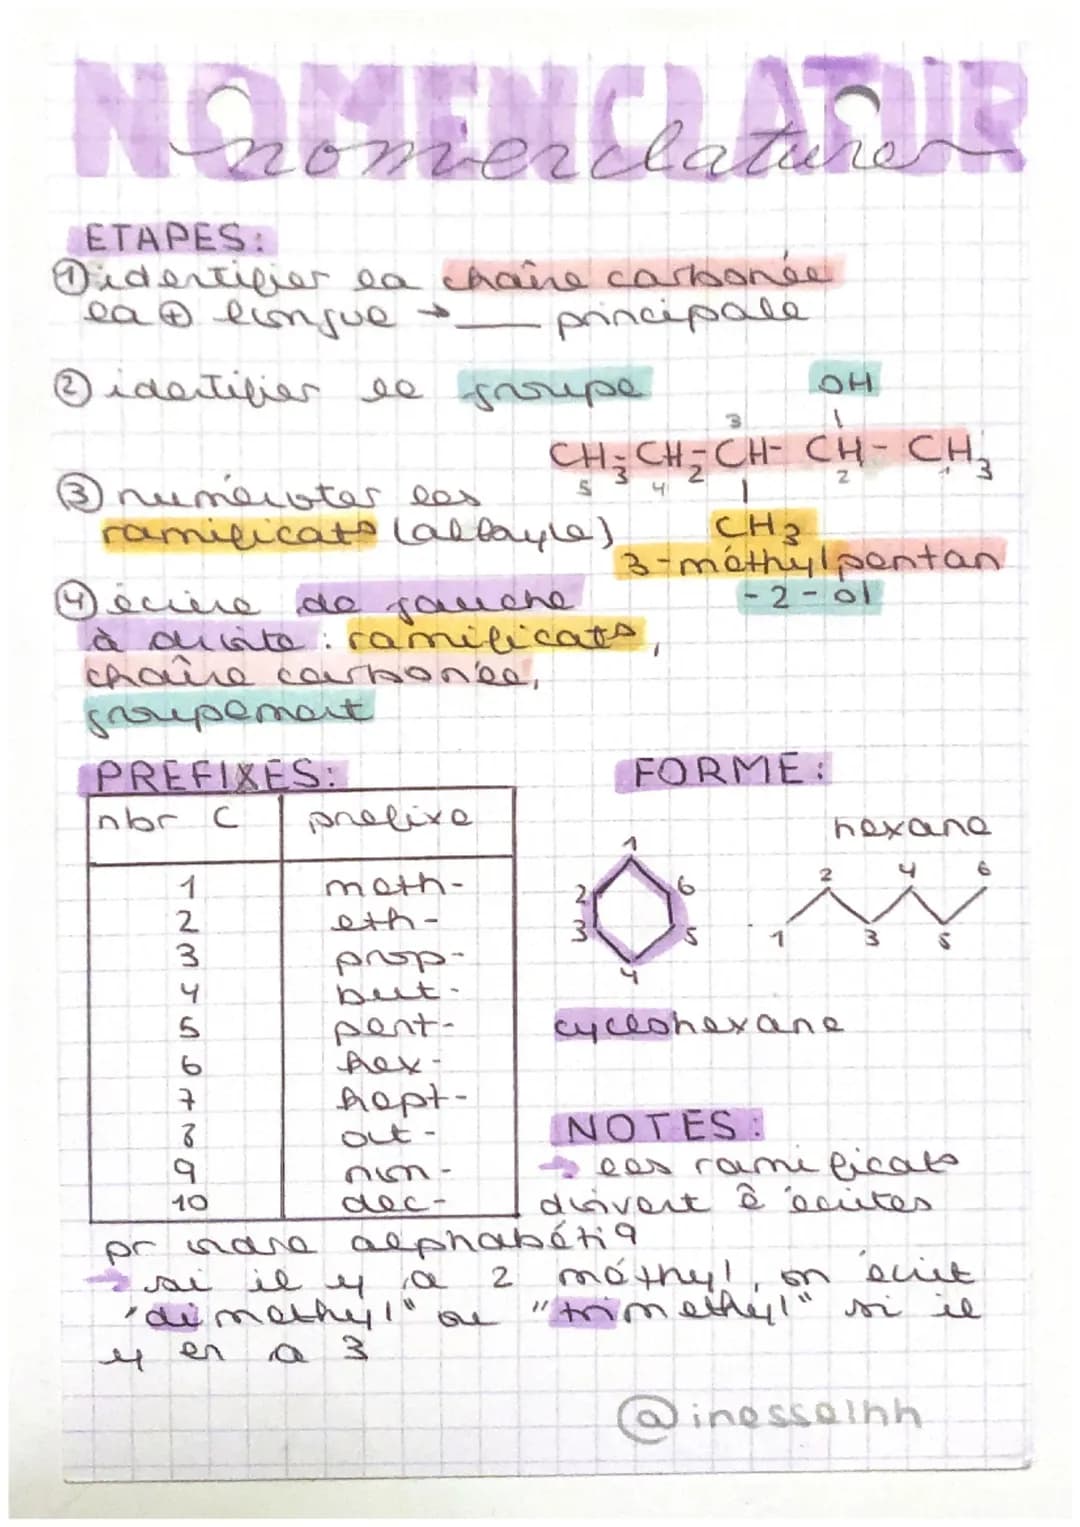 NOMENCLATUR
nomenclature
ETAPES:
① identifier la chaîne carbonée
la ⊕ longue → ___ principale
② identifier le groupe
OH
3
CH3-CH2-CH-CH-CH3
5 4 2 1
③ numéroter les
ramificats (alkyle)
CH3
3-méthylpentan
-2-ol
④ écrire de gauche
à droite : ramificats,
chaîne carbonée,
groupement
PREFIXES:
nbr C prefixe
1 meth-
2 eth-
3 prop-
4 but-
5 pent-
6 hex-
7 hept-
8 oct-
9 non-
10 dec-
FORME:
hexane
1 2 3 4 5 6
1 2 3 4 5 6
cyclohexane
NOTES:
→ les ramificats
doivent ê écrites
pr ordre alphabétiq
→ si il y a 2 méthyl, on écrit
"dimethyl" ou "trimethyl" si il
y en a 3
@inesselhh